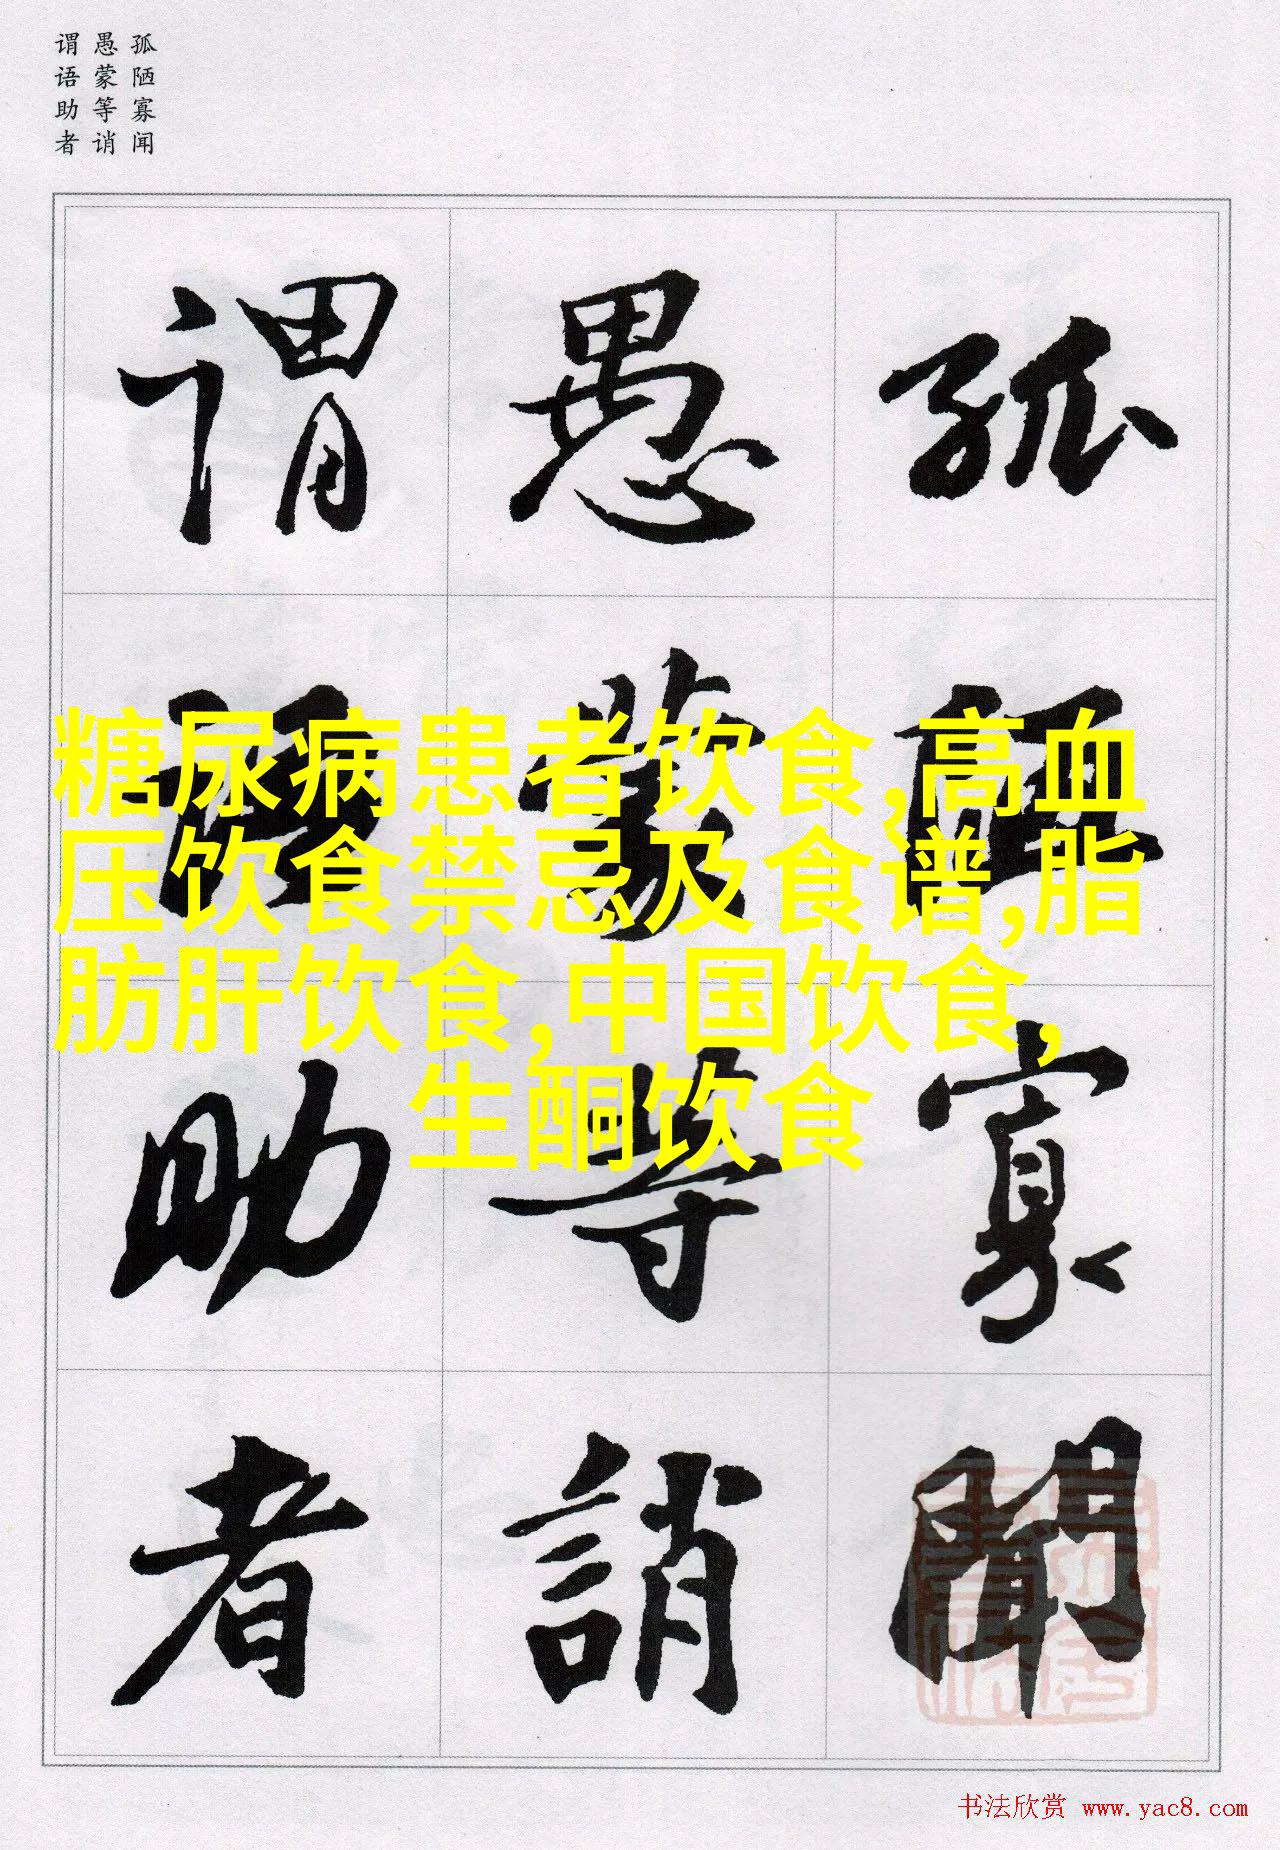 孤陋寡闻
愚蒙等诮
谓语助者
孤陋寡聞
愚蒙等誚
谓语助者
糖尿病患者饮食,高血
压饮食禁忌及食谱,脂
肪肝饮食,中国饮食,
生酮饮食
书法欣赏 www.yac8.com